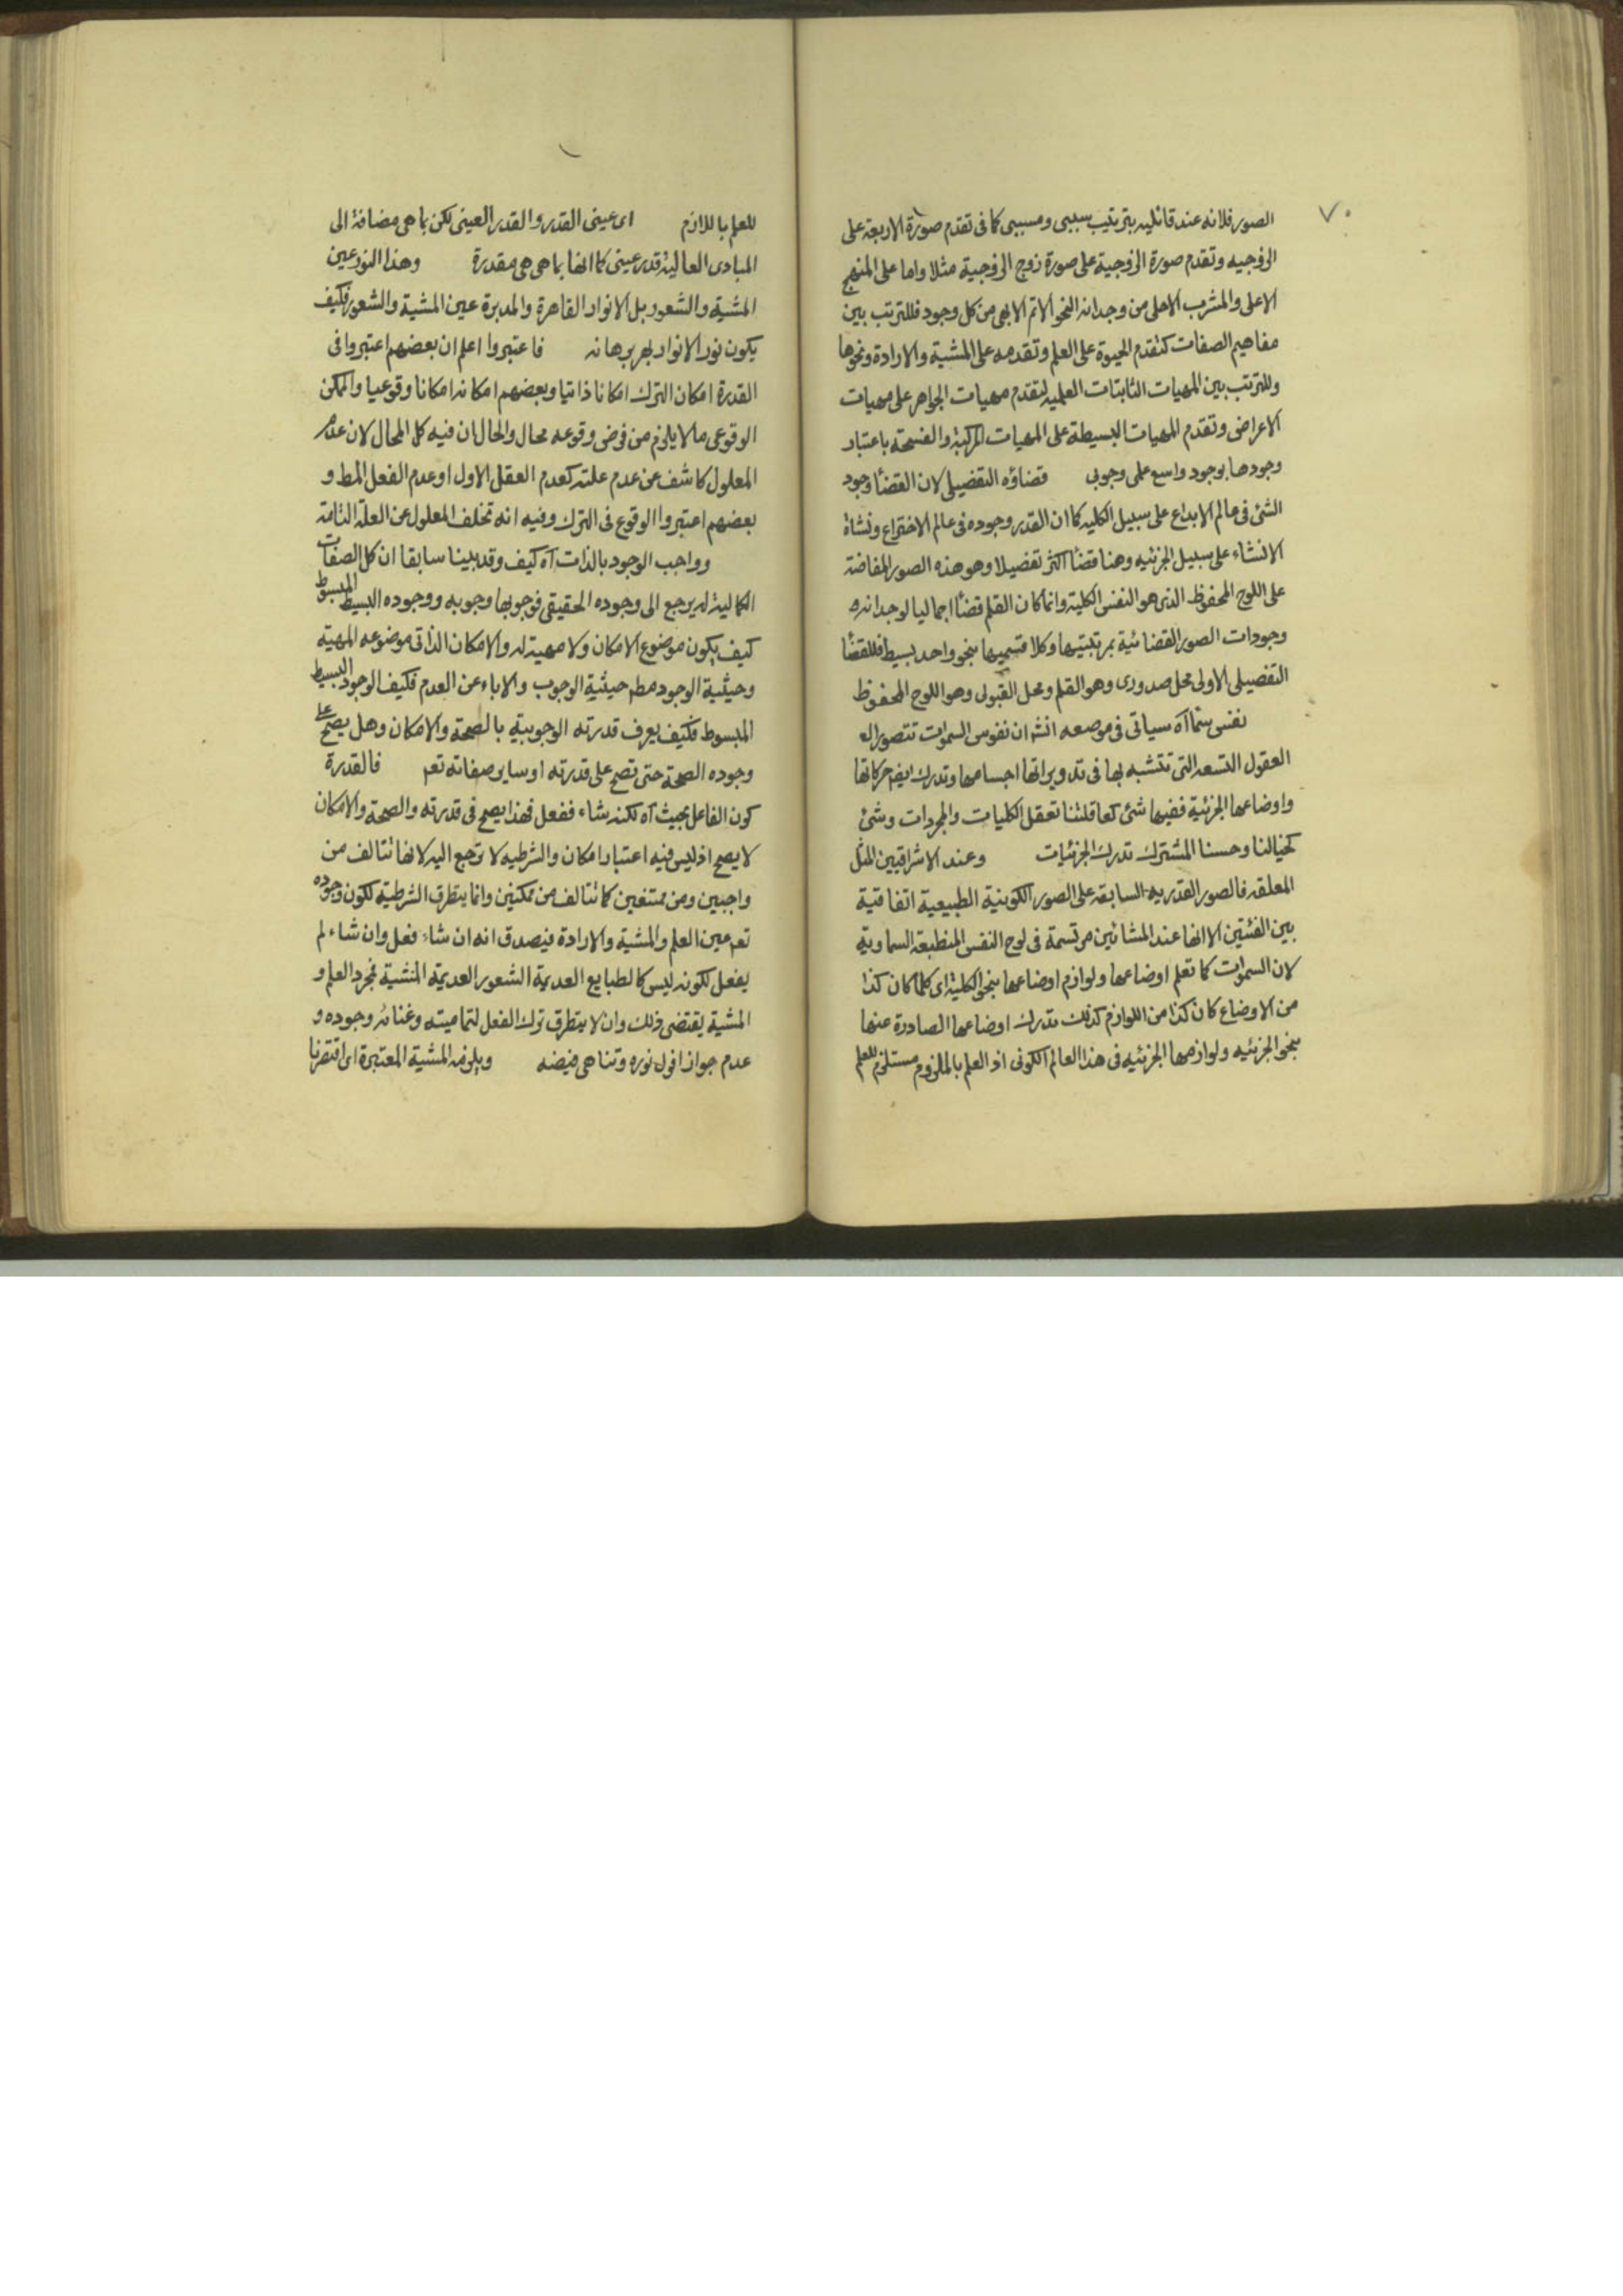 ٧٠
الصور فلانه عند قائليه بترتيب سببى ومسببى كما فى تقدم صورة الاربعة على
الزوجيه وتقدم صورة الزوجية على صورة زوج الزوجية مثلا واما على المنهج
الاعلى والمشرب الاحلى من وجدانه النحو الاتم الابهى من كل وجود فللترتب بين
مفاهيم الصفات كتقدم الحيوة على العلم وتقدمه على المشية والارادة ونحوها
وللترتب بين المهيات الثابتات العلميه لتقدم مهيات الجواهر على مهيات
الاعراض وتقدم المهيات البسيطة على المهيات المركبة والفسحة باعتبار
وجودها بوجود واسع على وجوبى قضاؤه التفضيلى لان القضأ وجود
الشئ فى عالم الابداع على سبيل الكليه كما ان القدر وجوده فى عالم الاختراع ونشاة
الانشاء على سبيل الجزئيه وهنا قضأ اكثر تفضيلا وهو هذه الصور المفاضة
على اللوح المحفوظ الذى هو النفس الكلية وانما كان القلم قضأ اجماليا لوجدانه
وجودات الصور القضائية بمرتبتيها وكلا قسميها بنحو واحد بسيط فللقضأ
التفصيلى الاولى محل صدورى وهو القلم ومحل القبولى وهو اللوح المحفوظ
نفس سمأ آه سياتى فى موصعه انش ان نفوس السموات تتصور
العقول التسعه التى تتشبه بها فى تدويراتها اجسامها وتدرك ايضم حركاتها
واوضاعها الجزئية ففيها شئ كعاقلتنا تعقل الكليات والمجردات وشئ
كخيالنا وحسنا المشترك تدرك الجزئيات وعند الاشراقيين المثل
المعلقه فالصور القدريه السابقه على الصور الكونية الطبيعية اتفاقية
بين الفئتين الا انها عند المشائين مرتسمة فى لوح النفس المنطبعة السماوية
لان السموات كما تعلم اوضاعها ولوازم اوضاعها بنحو الكلية اى كلما كان كذا
من الاوضاع كان كذا من اللوازم كذلك تدرك اوضاعها الصادرة عنها
بنحو الجزئيه ولوازمها الجزئيه فى هذا العالم الكونى اذ العلم بالملزوم مستلزم للعلم
للعلم باللازم اى عينى القدر والقدر العينى لكن بما هى مضافة الى
المبادى العالية قدر عينى كما انها بما هى هى مقدرة وهذا النور عين
المشية والشعور بل الانوار القاهرة والمدبرة عين المشية والشعور فكيف
يكون نور الانوار بهر برهانه فاعتبروا اعلم ان بعضهم اعتبروا فى
القدرة امكان الترك امكانا ذاتيا وبعضهم امكانه امكانا وقوعيا والممكن
الوقوعى ما لا يلزم من فرض وقوعه محال والحال ان فيه كل المحال لان عدم
المعلول كاشف عن عدم علته كعدم العقل الاول او عدم الفعل المط و
بعضهم اعتبروا الوقوع فى الترك وفيه انه تخلف المعلول عن العلة التامة
وواجب الوجود بالذات آه كيف وقد بينا سابقا ان كل الصفات
الكمالية له يرجع الى وجوده الحقيقى فوجوبها وجوبه ووجوده البسيط المبسوط
كيف يكون موضوع الامكان ولا مهية له والامكان الذاتى موضوعه المهية
وحيثية الوجود مطم حيثية الوجوب والاباء عن العدم فكيف الوجود البسيط
المبسوط فكيف يعرف قدرته الوجوبية بالصحة والامكان وهل يصح على
وجوده الصحة حتى تصح على قدرته او ساير صفاته تعم فالقدرة
كون الفاعل بحيث آه لكنه شاء ففعل فهذا يصح فى قدرته والصحة والامكان
لا يصح اذ ليس فيه اعتبار امكان والشرطيه لا ترجع اليه لانها تتالف من
واجبين ومن ممتنعين كما تتالف من ممكنين وانما يتطرق الشرطية لكون وجوده
تعم عين العلم والمشية والارادة فيصدق انه ان شاء فعل وان شاء لم
يفعل لكونه ليس كالطبايع العديمة الشعور العديمة المشية فمجرد العلم و
المشية يقتضى ذلك وان لا يتطرق ترك الفعل لتماميته وغنائه وجوده و
عدم جواز افول نوره وتناهى فيضه ويلزمه المشية المعتبرة اى اقتضرنا